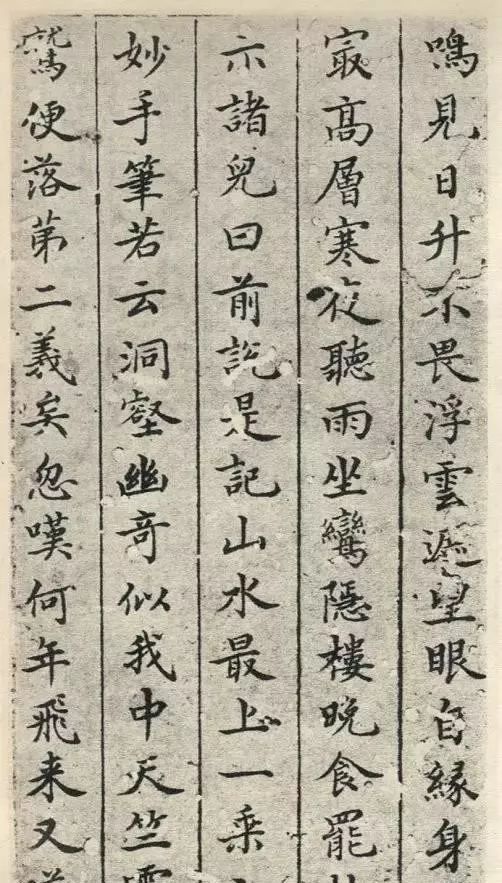 鳴見日升不畏浮雲遮望眼自緣身
冣高層寒夜聽雨坐鸞隱樓晚食罷
示諸兒曰前説是記山水最上一乘
妙手筆若云洞壑幽奇似我中天竺靈
鷲便落苐二義矣忽嘆何年飛来又